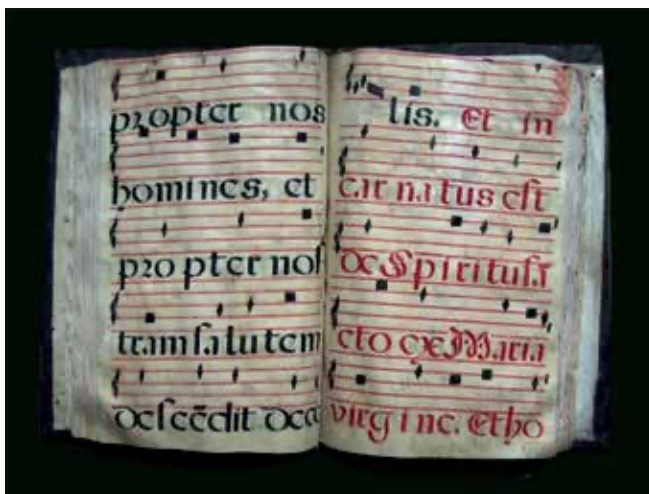 propter nos
homines, et
pro pter nos
tram sa lu tem
descēdit de cę
lis. Et in
car na tus est
de Spi ri tu sā
cto ex Maria
virg i ne. Et ho